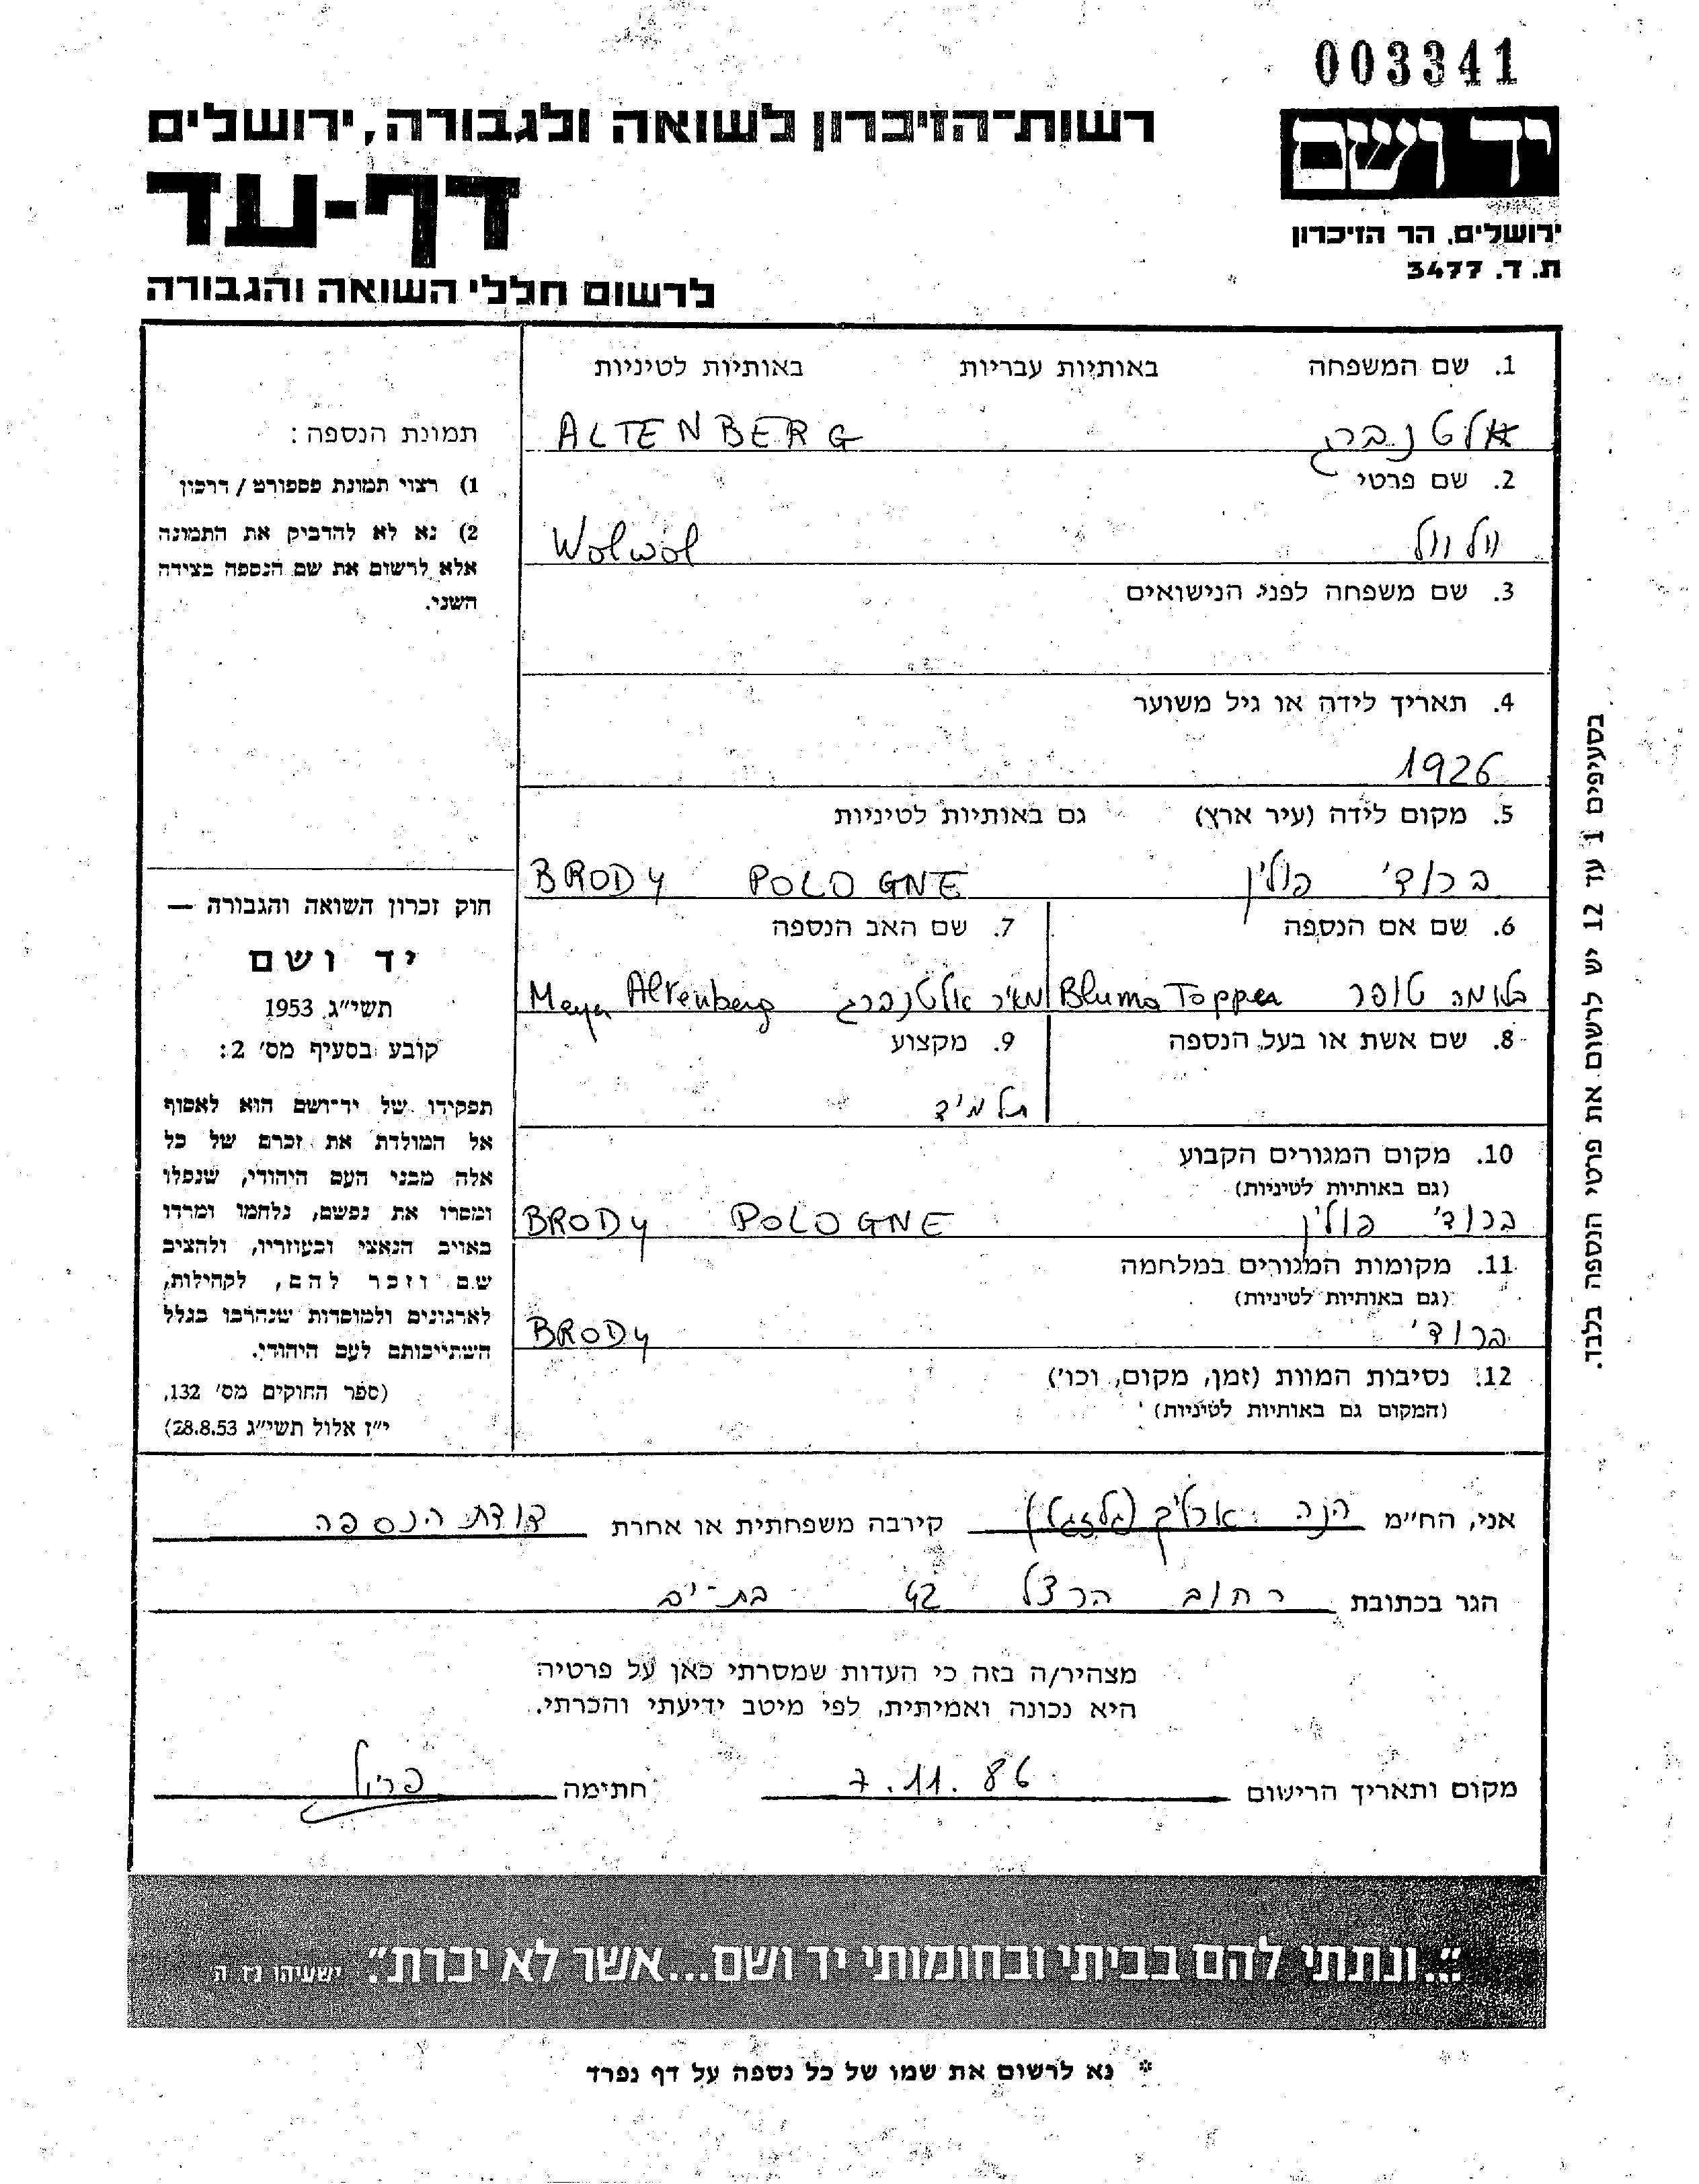 003341
יד ושם
רשות־הזיכרון לשואה ולגבורה, ירושלים
דף-עד
לרשום חללי השואה והגבורה
ירושלים, הר הזיכרון
ת. ד. 3477
1. שם המשפחה באותיות עבריות באותיות לטיניות
אלטנברג ALTENBERG
2. שם פרטי
וולוול Wolwol
3. שם משפחה לפני הנישואים
4. תאריך לידה או גיל משוער
1926
5. מקום לידה (עיר ארץ) גם באותיות לטיניות
ברודי פולין BRODY POLOGNE
6. שם אם הנספה 7. שם האב הנספה
בלומה טופר Bluma Topper מאיר אלטנברג Meyer Altenberg
8. שם אשת או בעל הנספה 9. מקצוע
תלמיד
10. מקום המגורים הקבוע
(גם באותיות לטיניות)
ברודי פולין BRODY POLOGNE
11. מקומות המגורים במלחמה
(גם באותיות לטיניות)
ברודי BRODY
12. נסיבות המוות (זמן, מקום, וכו')
(המקום גם באותיות לטיניות)
תמונת הנספה:
1) רצוי תמונת פספורט / דרכון
2) נא לא להדביק את התמונה
אלא לרשום את שם הנספה בצידה
השני.
חוק זכרון השואה והגבורה —
יד ושם
תשי"ג 1953
קובע בסעיף מס' 2:
תפקידו של יד־ושם הוא לאסוף
אל המולדת את זכרם של כל
אלה מבני העם היהודי, שנפלו
ומסרו את נפשם, נלחמו ומרדו
באויב הנאצי ובעוזריו, ולהציב
שם וזכר להם, לקהילות,
לארגונים ולמוסדות שנהרבו בגלל
השתייכותם לעם היהודי.
(ספר החוקים מס' 132,
י"ז אלול תשי"ג 28.8.53)
בסעיפים 1 עד 12 יש לרשום את פרטי הנספה בלבד.
אני, הח"מ הנה קירבה משפחתית או אחרת דודת הנספה
הגר בכתובת רחוב הרצל 42 בת-ים
מצהיר/ה בזה כי העדות שמסרתי כאן על פרטיה
היא נכונה ואמיתית, לפי מיטב ידיעתי והכרתי.
מקום ותאריך הרישום 7.11.86 חתימה
"...ונתתי להם בביתי ובחומותי יד ושם...אשר לא יכרת". ישעיהו נז ה
* נא לרשום את שמו של כל נספה על דף נפרד